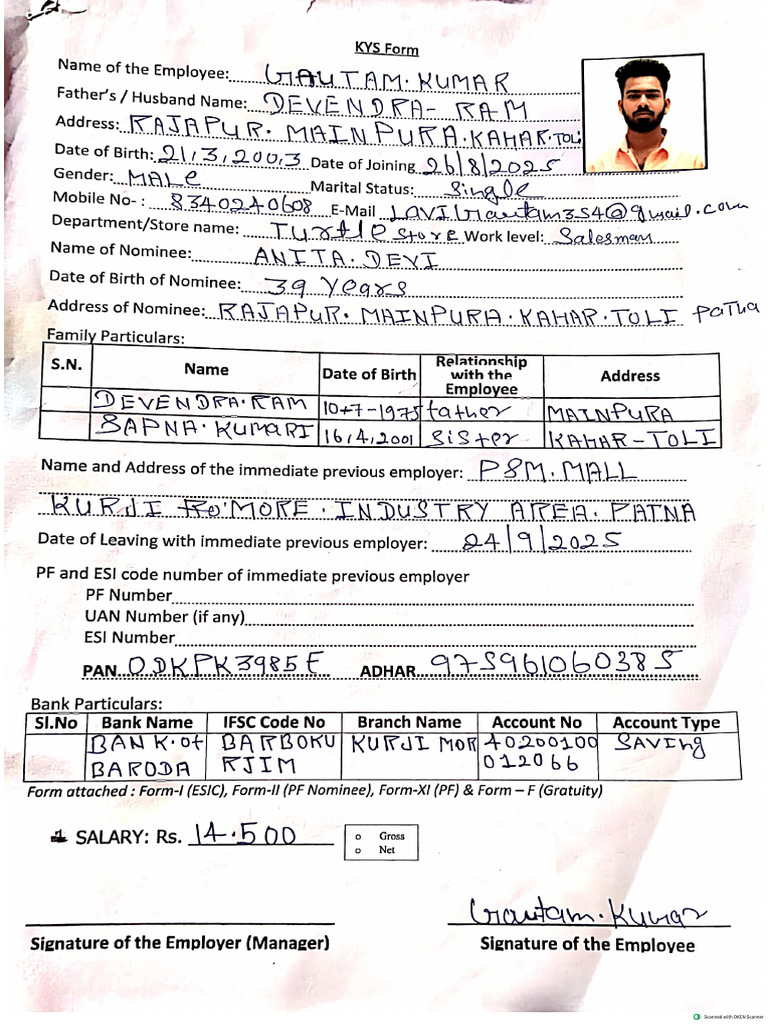 KYS Form
Name of the Employee: GAUTAM. KUMAR
Father's / Husband Name: DEVENDRA- RAM
Address: RAJAPUR. MAINPURA. KAHAR. TOLI
Date of Birth: 21,3,2003 Date of Joining 26/8/2025
Gender: MALe Marital Status: Single
Mobile No- : 8340240608 E-Mail LAVIGautam354@gmail.com
Department/Store name: Turtle store Work level: Salesman
Name of Nominee: ANITA. DEVI
Date of Birth of Nominee: 39 Years
Address of Nominee: RAJAPUR. MAINPURA. KAHAR. TOLI Patna
Family Particulars:
S.N. Name Date of Birth Relationship with the Employee Address
DEVENDRA. RAM 10+7-1975 father MAINPURA
SAPNA. KUMARI 16,4,2001 Sister KAHAR-TOLI
Name and Address of the immediate previous employer: P&M. MALL
KURJI MORE. INDUSTRY AREA. PATNA
Date of Leaving with immediate previous employer: 24/9/2025
PF and ESI code number of immediate previous employer
PF Number
UAN Number (if any)
ESI Number
PAN ODKPK3985F ADHAR 975961060385
Bank Particulars:
Sl.No Bank Name IFSC Code No Branch Name Account No Account Type
BANK. of BARBOKU KURJI MOR 40200100 SAVIng
BARODA RJIM 012066
Form attached : Form-I (ESIC), Form-II (PF Nominee), Form-XI (PF) & Form – F (Gratuity)
SALARY: Rs. 14.500
Gross
Net
Gautam. Kumar
Signature of the Employer (Manager) Signature of the Employee
Scanned with OKEN Scanner